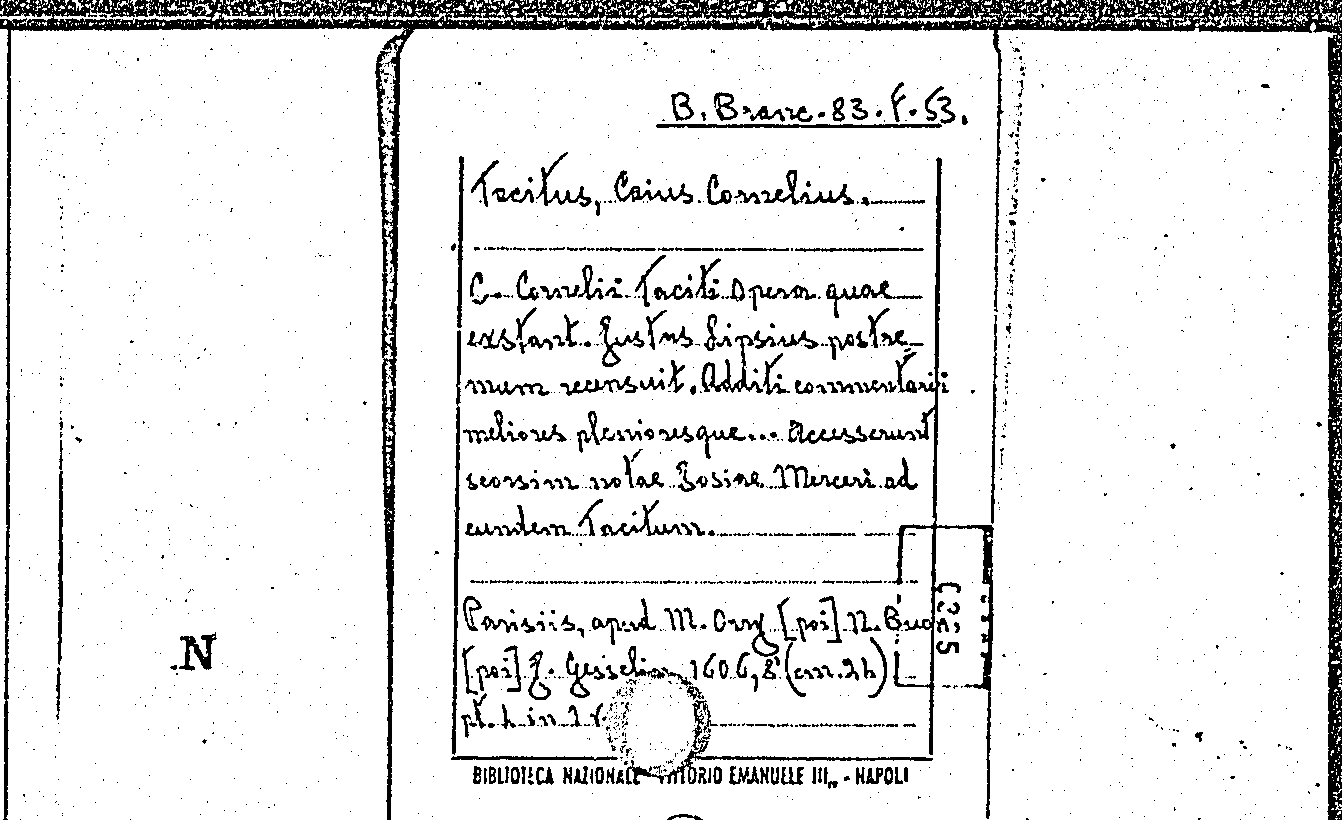 B. Branc. 83. F. 53.
Tacitus, Caius Cornelius.
C. Cornelii Taciti Opera quae
exstant. Justus Lipsius postre_
mum recensuit. Additi commentarii
meliores plenioresque... Accesserunt
seorsim notae Josiae Merceri ad
eundem Tacitum.
Parisiis, apud M. Orry [poi] N. Buon
[poi] J. Gesselin 1606, 8° (cm. 24)
pt. 4 in 2 v.
N
BIBLIOTECA NAZIONALE "VITTORIO EMANUELE III„ - NAPOLI